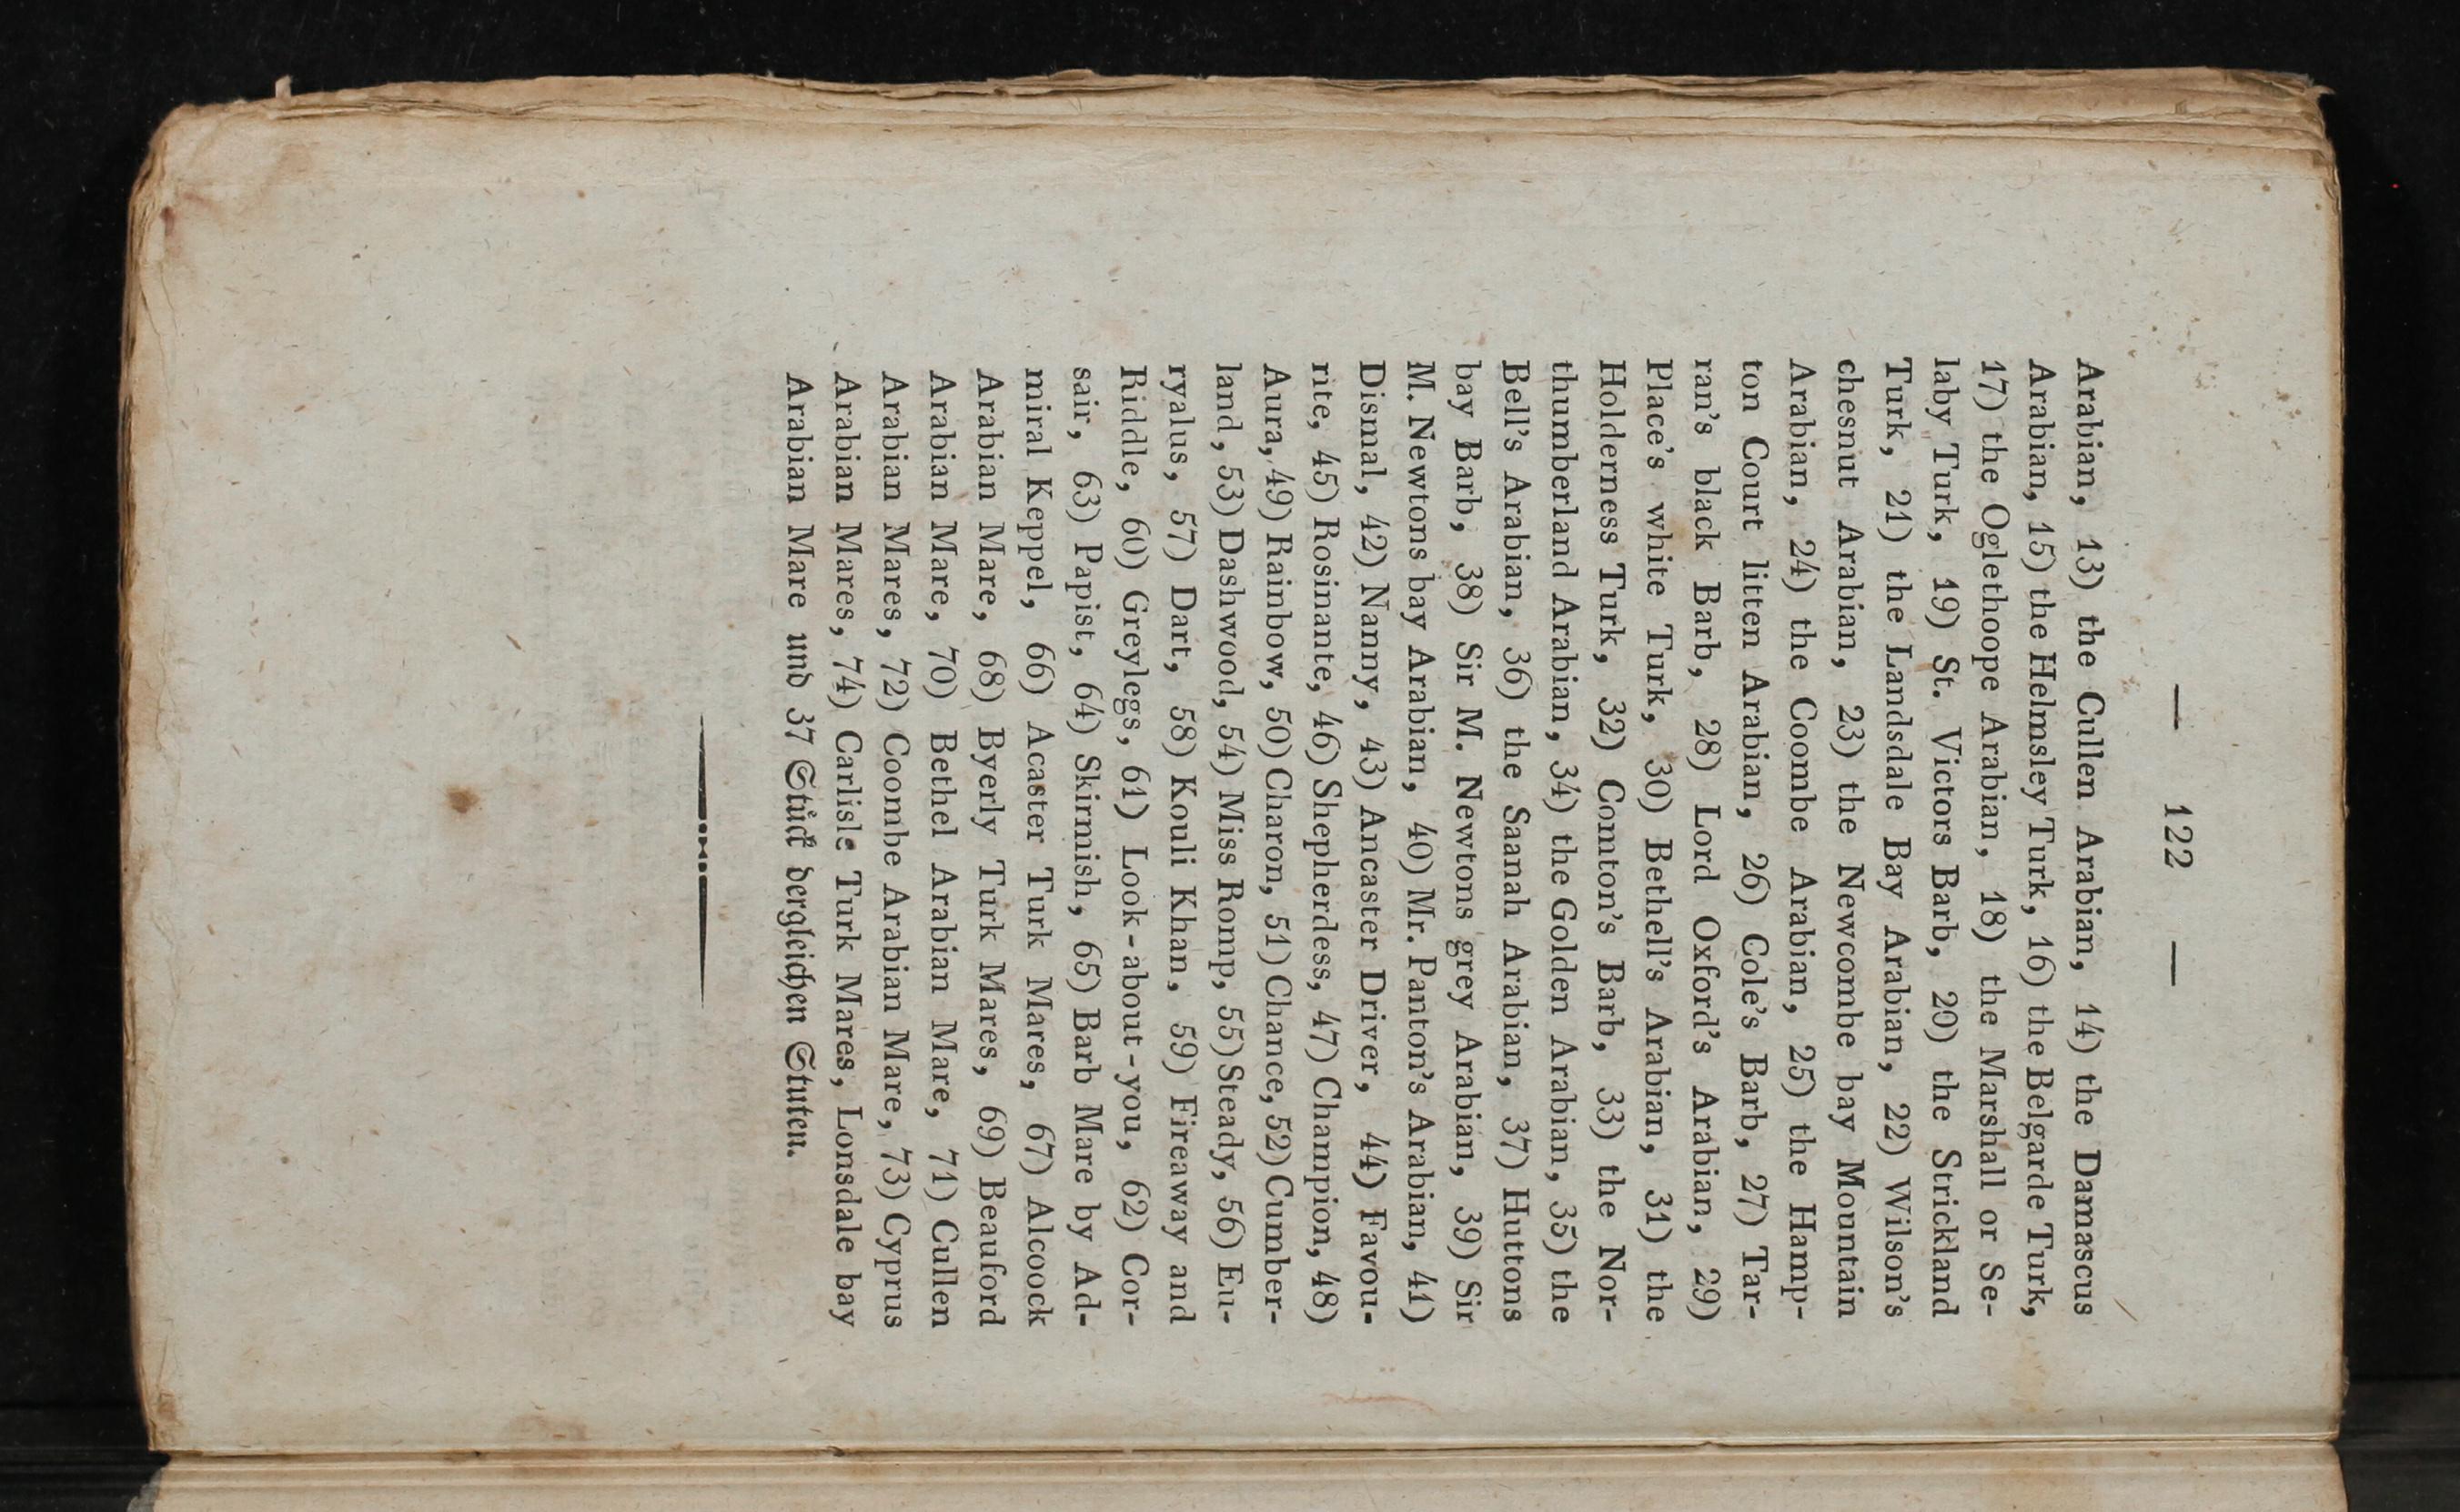 — 122 —
Arabian, 13) the Cullen Arabian, 14) the Damascus
Arabian, 15) the Helmsley Turk, 16) the Belgarde Turk,
17) the Oglethoope Arabian, 18) the Marshall or Se-
laby Turk, 19) St. Victors Barb, 20) the Strickland
Turk, 21) the Landsdale Bay Arabian, 22) Wilson's
chesnut Arabian, 23) the Newcombe bay Mountain
Arabian, 24) the Coombe Arabian, 25) the Hamp-
ton Court litten Arabian, 26) Cole's Barb, 27) Tar-
ran's black Barb, 28) Lord Oxford's Arabian, 29)
Place's white Turk, 30) Bethell's Arabian, 31) the
Holderness Turk, 32) Comton's Barb, 33) the Nor-
thumberland Arabian, 34) the Golden Arabian, 35) the
Bell's Arabian, 36) the Saanah Arabian, 37) Huttons
bay Barb, 38) Sir M. Newtons grey Arabian, 39) Sir
M. Newtons bay Arabian, 40) Mr. Panton's Arabian, 41)
Dismal, 42) Nanny, 43) Ancaster Driver, 44) Favou-
rite, 45) Rosinante, 46) Shepherdess, 47) Champion, 48)
Aura, 49) Rainbow, 50) Charon, 51) Chance, 52) Cumber-
land, 53) Dashwood, 54) Miss Romp, 55) Steady, 56) Eu-
ryalus, 57) Dart, 58) Kouli Khan, 59) Fireaway and
Riddle, 60) Greylegs, 61) Look-about-you, 62) Cor-
sair, 63) Papist, 64) Skirmish, 65) Barb Mare by Ad-
miral Keppel, 66) Acaster Turk Mares, 67) Alcoock
Arabian Mare, 68) Byerly Turk Mares, 69) Beauford
Arabian Mare, 70) Bethel Arabian Mare, 71) Cullen
Arabian Mares, 72) Coombe Arabian Mare, 73) Cyprus
Arabian Mares, 74) Carlisle Turk Mares, Lonsdale bay
Arabian Mare und 37 Stück dergleichen Stuten.